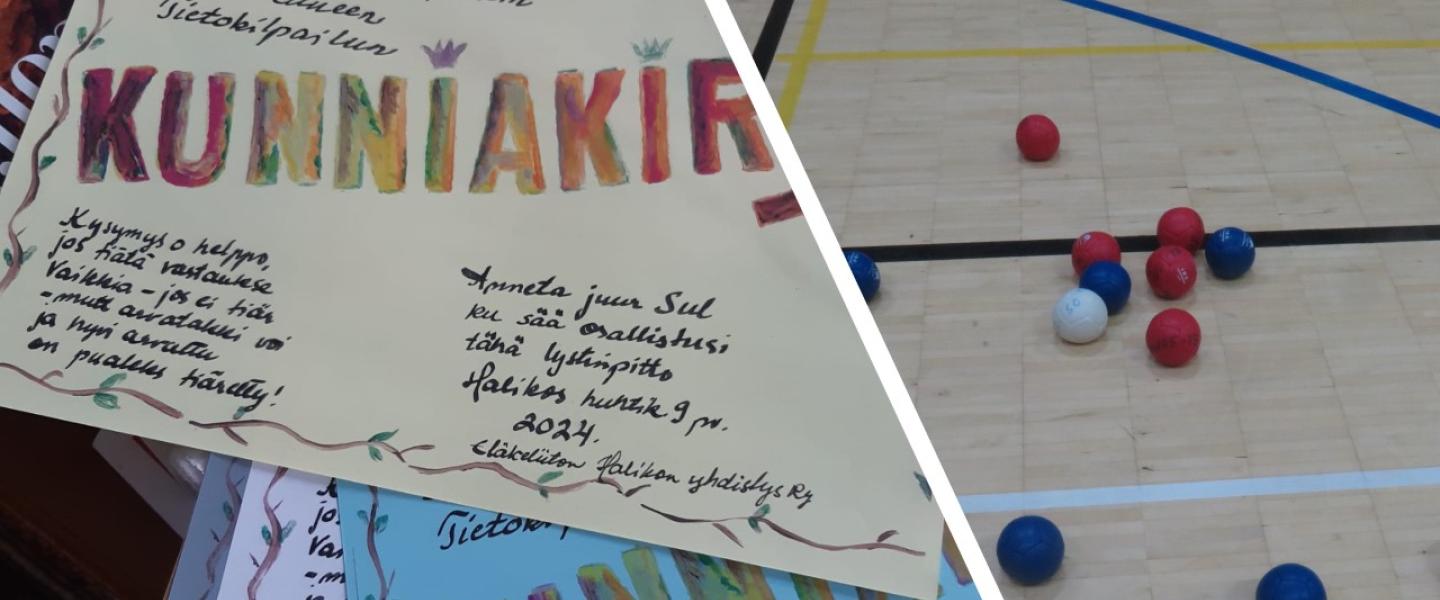 Tietokilpailun
KUNNIAKIR
Kysymys o helppo,
jos tiätä vastaukse
Vaikkia - jos ei tiär
- mutt arvatakki voi
ja hyvi arvattu
on pualeks tiäretty!
Anneta juur Sul
ku sää osallistusi
tähä lystinpitto
Halikos huhtik 9 pv.
2024.
Eläkeliiton Halikon yhdistys Ry
jos
Tietoki